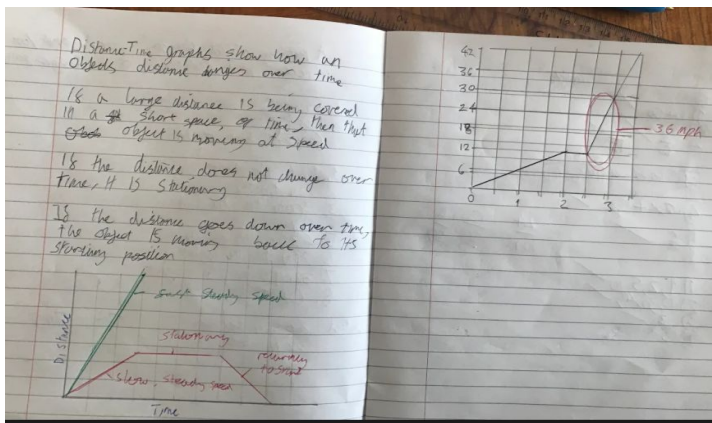 Distance-Time graphs show how an
Objects distance changes over time
If a large distance is being covered
in a short space, of time, then that
object is moving at speed
If the distance does not change over
time, it is stationary
If the distance goes down over time,
the object is moving back to its
starting position
fast steady speed
stationary
returning
to start
slow, steady speed
Distance
Time
42
36
30
24
18
12
6
0
1
2
3
36 mph